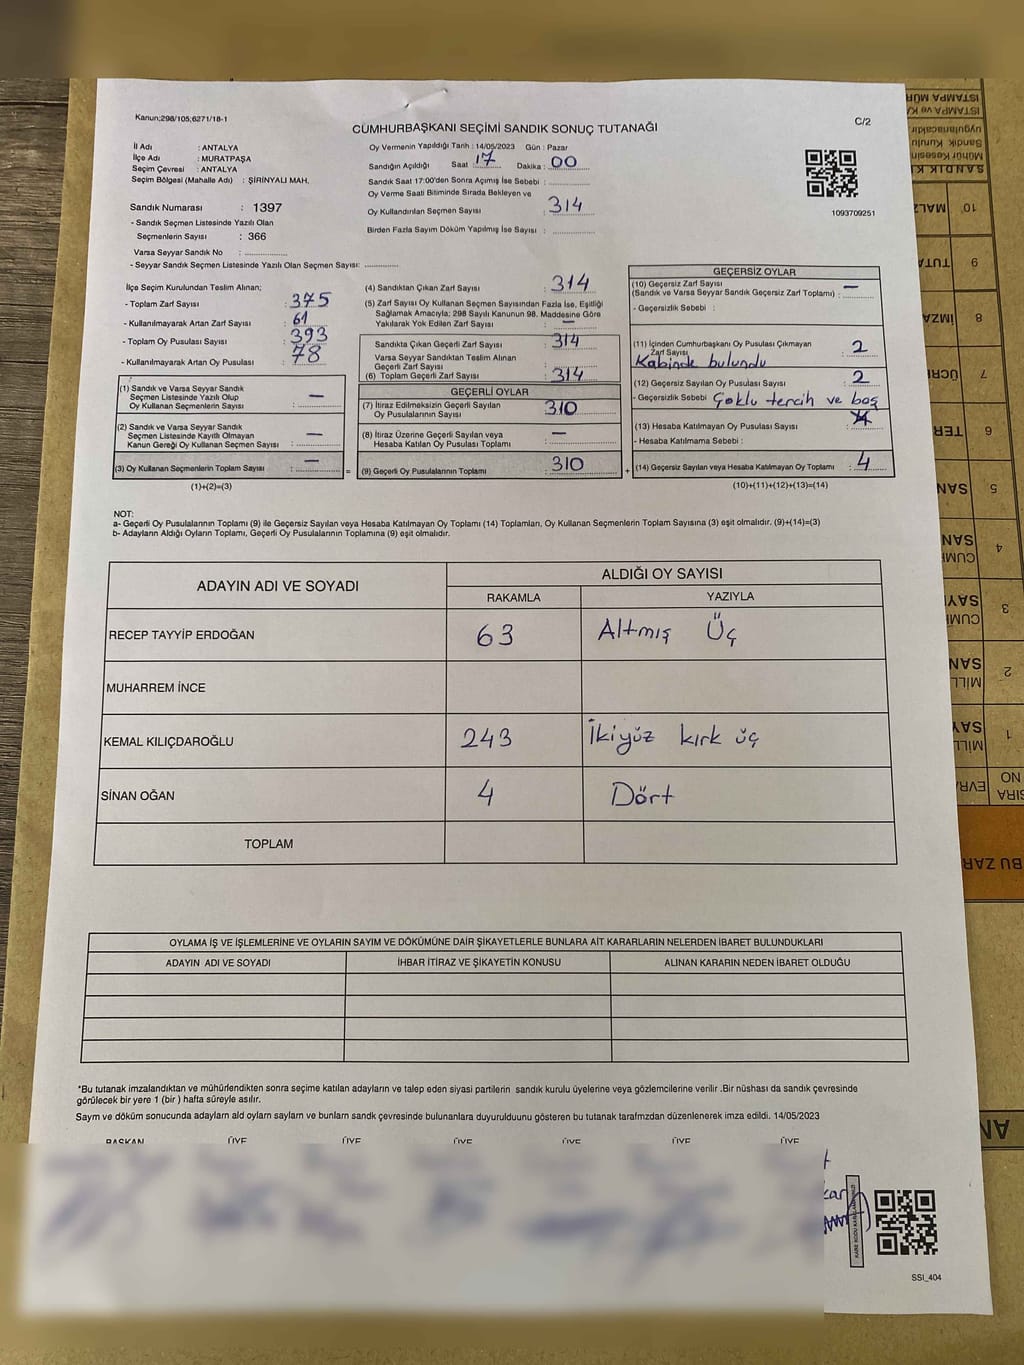 Kanun;298/105;6271/18-1
CUMHURBAŞKANI SEÇİMİ SANDIK SONUÇ TUTANAĞI
C/2
İl Adı : ANTALYA
İlçe Adı : MURATPAŞA
Seçim Çevresi : ANTALYA
Seçim Bölgesi (Mahalle Adı) : ŞİRİNYALI MAH.
Sandık Numarası : 1397
- Sandık Seçmen Listesinde Yazılı Olan
Seçmenlerin Sayısı : 366
Varsa Seyyar Sandık No : ..............
- Seyyar Sandık Seçmen Listesinde Yazılı Olan Seçmen Sayısı: ............
Oy Vermenin Yapıldığı Tarih : 14/05/2023 Gün : Pazar
Sandığın Açıldığı Saat : 17 Dakika : 00
Sandık Saat 17:00'den Sonra Açımış İse Sebebi : ..............
Oy Verme Saati Bitiminde Sırada Bekleyen ve
Oy Kullandırılan Seçmen Sayısı : 314
Birden Fazla Sayım Döküm Yapılmış İse Sayısı : ..............
1093709251
İlçe Seçim Kurulundan Teslim Alınan;
- Toplam Zarf Sayısı : 375
- Kullanılmayarak Artan Zarf Sayısı : 61
- Toplam Oy Pusulası Sayısı : 393
- Kullanılmayarak Artan Oy Pusulası : 78
(1) Sandık ve Varsa Seyyar Sandık
Seçmen Listesinde Yazılı Olup
Oy Kullanan Seçmenlerin Sayısı : —
(2) Sandık ve Varsa Seyyar Sandık
Seçmen Listesinde Kayıtlı Olmayan
Kanun Gereği Oy Kullanan Seçmen Sayısı : —
(3) Oy Kullanan Seçmenlerin Toplam Sayısı : — =
(1)+(2)=(3)
(4) Sandıktan Çıkan Zarf Sayısı : 314
(5) Zarf Sayısı Oy Kullanan Seçmen Sayısından Fazla İse, Eşitliği
Sağlamak Amacıyla; 298 Sayılı Kanunun 98. Maddesine Göre
Yakılarak Yok Edilen Zarf Sayısı : —
Sandıkta Çıkan Geçerli Zarf Sayısı : 314
Varsa Seyyar Sandıktan Teslim Alınan
Geçerli Zarf Sayısı
(6) Toplam Geçerli Zarf Sayısı : 314
GEÇERLİ OYLAR
(7) İtiraz Edilmeksizin Geçerli Sayılan
Oy Pusulalarının Sayısı : 310
(8) İtiraz Üzerine Geçerli Sayılan veya
Hesaba Katılan Oy Pusulası Toplamı : —
(9) Geçerli Oy Pusulalarının Toplamı : 310 +
GEÇERSİZ OYLAR
(10) Geçersiz Zarf Sayısı
(Sandık ve Varsa Seyyar Sandık Geçersiz Zarf Toplamı) : —
- Geçersizlik Sebebi :
(11) İçinden Cumhurbaşkanı Oy Pusulası Çıkmayan
Zarf Sayısı : 2
Kabinde bulundu
(12) Geçersiz Sayılan Oy Pusulası Sayısı : 2
- Geçersizlik Sebebi : Çoklu tercih ve boş
(13) Hesaba Katılmayan Oy Pusulası Sayısı :
- Hesaba Katılmama Sebebi :
(14) Geçersiz Sayılan veya Hesaba Katılmayan Oy Toplamı : 4
(10)+(11)+(12)+(13)=(14)
NOT:
a- Geçerli Oy Pusulalarının Toplamı (9) ile Geçersiz Sayılan veya Hesaba Katılmayan Oy Toplamı (14) Toplamları, Oy Kullanan Seçmenlerin Toplam Sayısına (3) eşit olmalıdır. (9)+(14)=(3)
b- Adayların Aldığı Oyların Toplamı, Geçerli Oy Pusulalarının Toplamına (9) eşit olmalıdır.
ADAYIN ADI VE SOYADI ALDIĞI OY SAYISI
RAKAMLA YAZIYLA
RECEP TAYYİP ERDOĞAN 63 Altmış Üç
MUHARREM İNCE
KEMAL KILIÇDAROĞLU 243 İkiyüz kırk üç
SİNAN OĞAN 4 Dört
TOPLAM
OYLAMA İŞ VE İŞLEMLERİNE VE OYLARIN SAYIM VE DÖKÜMÜNE DAİR ŞİKAYETLERLE BUNLARA AİT KARARLARIN NELERDEN İBARET BULUNDUKLARI
ADAYIN ADI VE SOYADI İHBAR İTİRAZ VE ŞİKAYETİN KONUSU ALINAN KARARIN NEDEN İBARET OLDUĞU
*Bu tutanak imzalandıktan ve mühürlendikten sonra seçime katılan adayların ve talep eden siyasi partilerin sandık kurulu üyelerine veya gözlemcilerine verilir .Bir nüshası da sandık çevresinde
görülecek bir yere 1 (bir ) hafta süreyle asılır.
Sayım ve döküm sonucunda adayların ald oyların sayların ve bunların sandk çevresinde bulunanlara duyurulduunu gösteren bu tutanak tarafmzdan düzenlenerek imza edildi. 14/05/2023
BAŞKAN ÜYE ÜYE ÜYE ÜYE ÜYE ÜYE
SSI_404
10 MALZ
9 TUTA
8 İMZA
7 ÜCRE
6 TER
5 SAN
4 CUM SAN
3 CUM SAYI
2 MİLL SAN
1 MİLL SAY
SIRA NO EVRA
BU ZAR
AN